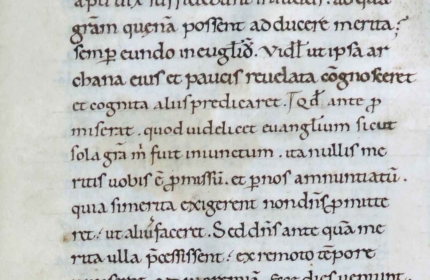 grām quenā possent adducere merita;
semp eundo in euglio. Vidl ut ipsa ar
chana eius et paucis reuelata cōgnosceret
et cognita aliis predicaret. Qd ante p
miserat. quod videlicet euanglium sicut
sola grā m fuit iniunctum. ita nullis me
ritis vobis ē pmissū. et p nos annuntiatū.
quia si merita exigerent non dns pmitte
ret. ut aliū faceret. Sed dns ante quā me
rita ulla pcessissent. ex remoto tēpore